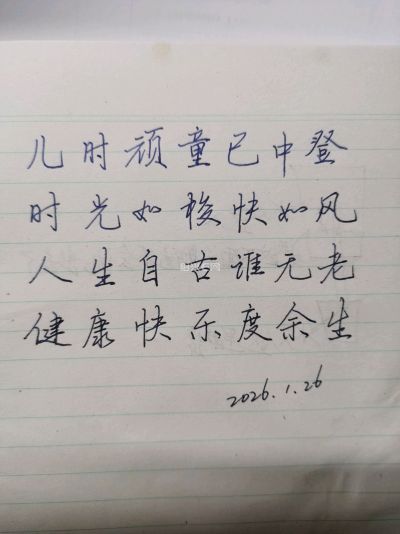 儿时顽童已中登
时光如梭快如风
人生自古谁无老
健康快乐度余生
2026.1.26